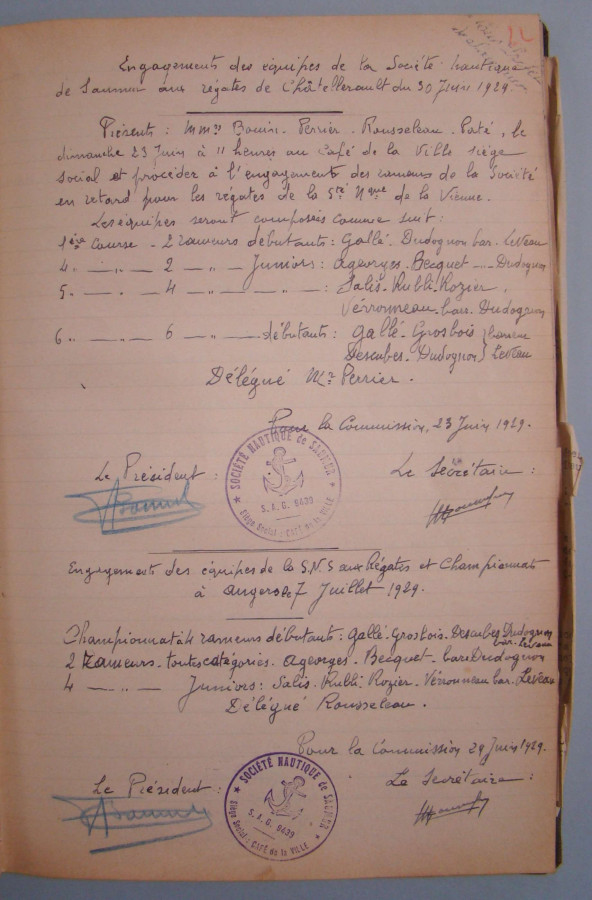 Engagements des équipes de la Société Nautique
de Saumur aux régates de Châtellerault du 30 Juin 1929.
Présents : MMrs Bouin - Perrier - Rousseleau - Paté, le
dimanche 23 Juin à 11 heures au Café de la Ville siège
social et procéder à l'engagements des rameurs de la Société
en retard pour les régates de la Sté Nque de la Vienne.
Les équipes seront composés comme suit :
1ère Course - 2 rameurs débutants : Gallé - Dudognon bar. Leveau
4. — " — 2 — " — Juniors : Ageorges - Becquet — Dudognon
5. — " — 4 — " — " : Salis - Rubli - Rozier.
Véronneau - barr. Dudognon
6. — " — 6 — " — débutants : Gallé - Grosbois } barreur
Descubes - Dudognon } Leveau
Délégué Mr Perrier.
Pour la Commission, 23 Juin 1929.
Le Président : Le Secrétaire :
★ SOCIÉTÉ NAUTIQUE de SAUMUR ★
S. A. G. 9439
Siège Social : CAFÉ de la VILLE
Engagements des équipes de la S.N.S aux Régates et Championnats
à Angers le 7 Juillet 1929.
Championnat à 4 rameurs débutants : Gallé - Grosbois - Descubes Dudognon
bar. Leveau
2 rameurs - toutes catégories. Ageorges - Becquet - barr Dudognon
4 — " — Juniors : Salis - Rubli - Rozier - Véronneau bar. Leveau
Délégué Rousseleau.
Pour la Commission 29 Juin 1929.
Le Président : Le Secrétaire :
★ SOCIÉTÉ NAUTIQUE de SAUMUR ★
S. A. G. 9439
Siège Social : CAFÉ de la VILLE